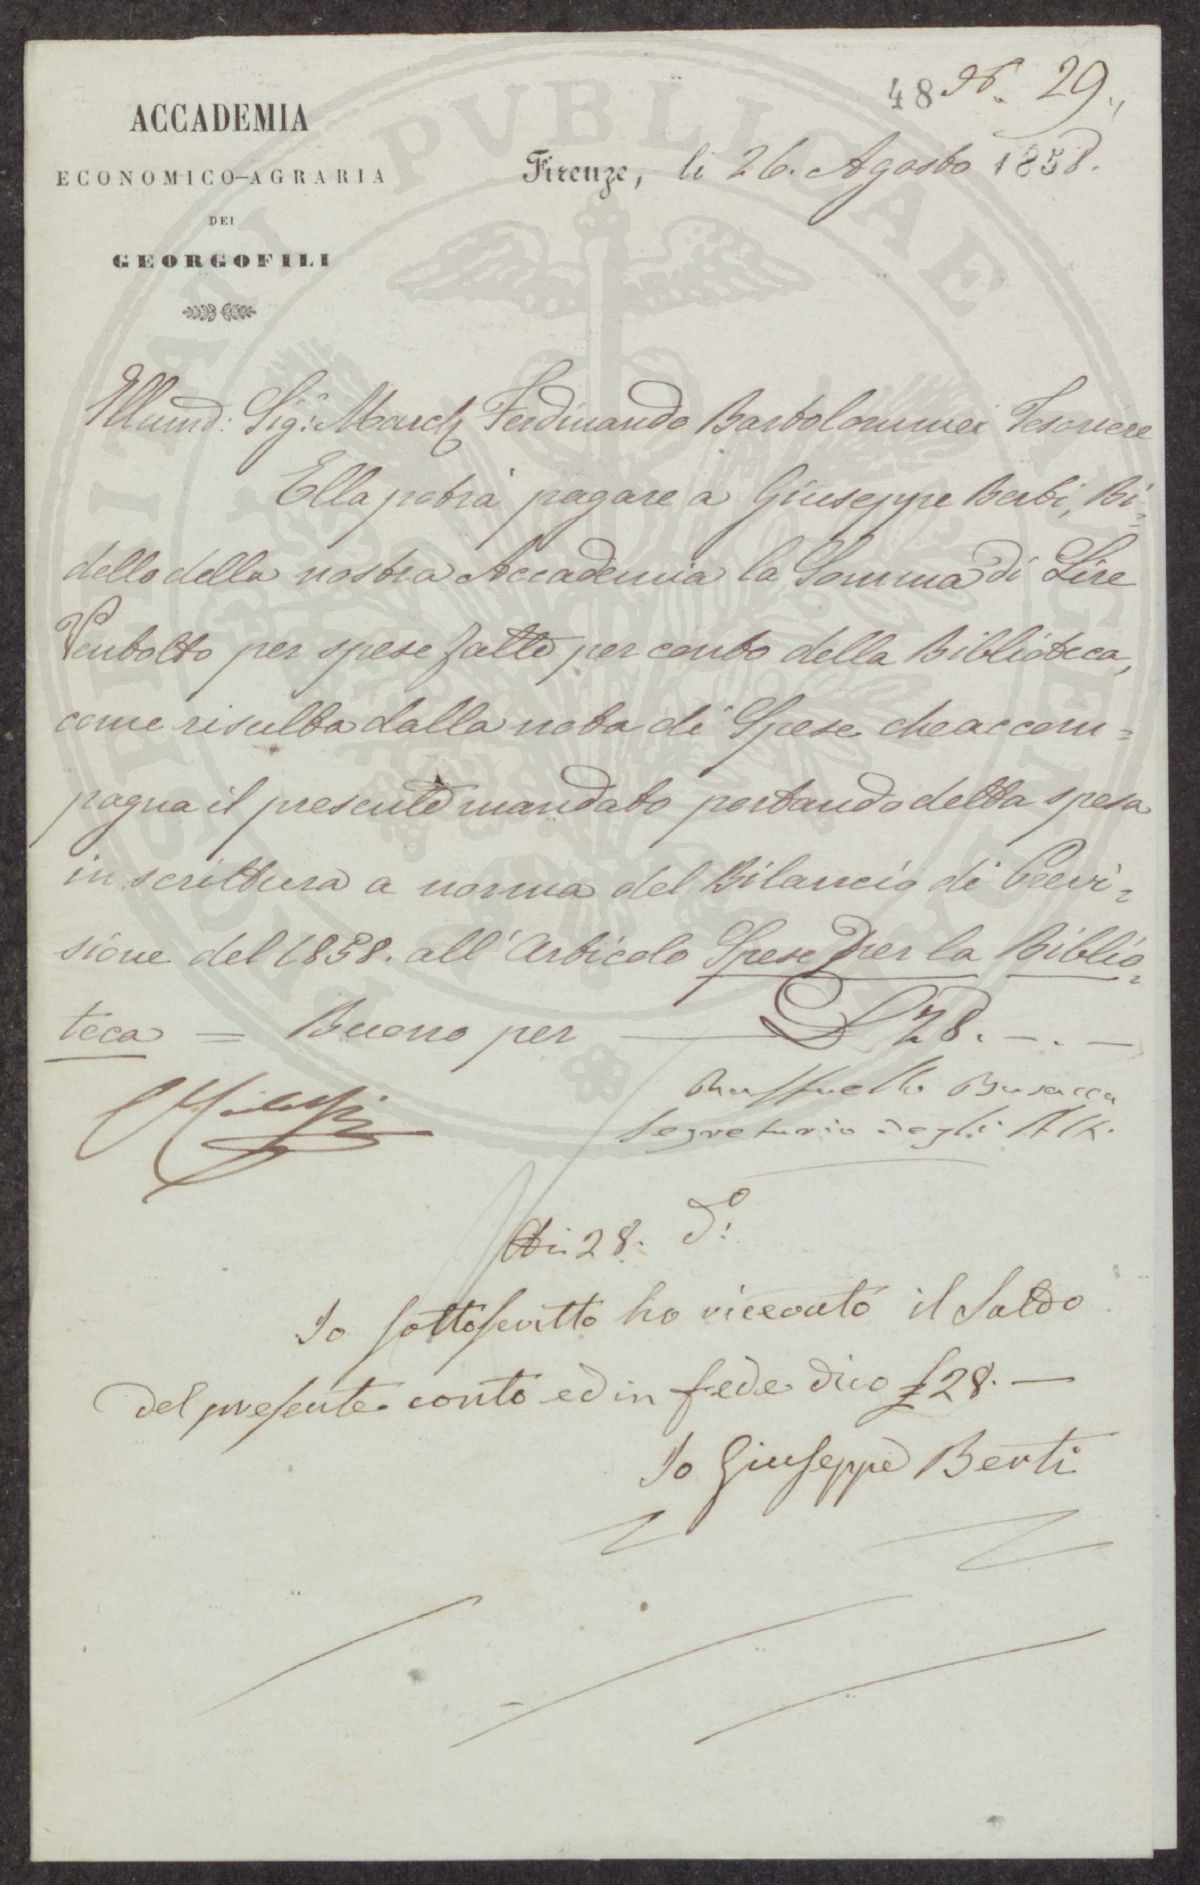 48 N. 29.
ACCADEMIA
ECONOMICO-AGRARIA
DEI
GEORGOFILI
Firenze, li 26. Agosto 1858.
Illumo: Sigr: March Ferdinando Bartolommei Tesoriere
Ella potrà pagare a Giuseppe Berti, Bi=
dello della nostra Accademia la Somma di Lire
Ventotto per spese fatte per conto della Biblioteca,
come risulta dalla nota di Spese che accom=
pagna il presente mandato portando detta spesa
in scrittura a norma del Bilancio di Previ=
sione del 1858. all'Articolo Spese per la Biblio=
teca = Buono per £ 28. - . -
Raffaello Busacca
Segretario degli Atti.
Adi 28. do:
Io sottoscritto ho ricevuto il saldo
del presente conto ed in fede dico £ 28. —
Io Giuseppe Berti
PUBLICAE